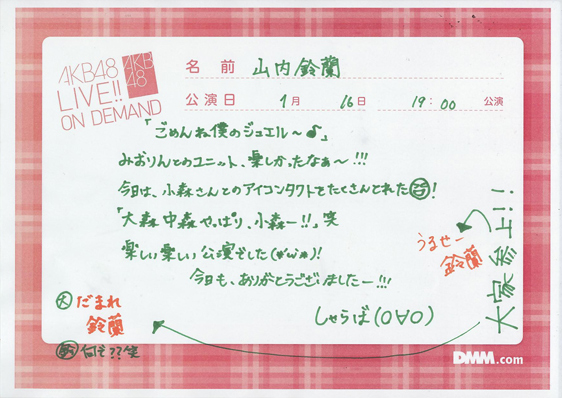 AKB48
LIVE!!
ON DEMAND
AKB
48
名前 山内鈴蘭
公演日 1月 16日 19:00 公演
「ごめんね僕のジュエル〜♪」
みおりんとのユニット、楽しかったなぁ〜!!!
今日は、小森さんとのアイコンタクトでたくさんとれた!
「大森中森やっぱり、小森ー!!」笑
楽しい楽しい公演でした(*'ω'*)!
今日も、ありがとうございましたー!!!
しゃらば(O∀O)
大家参上!!
うるせー
鈴蘭
大 だまれ
鈴蘭
何ぞ??笑
DMM.com